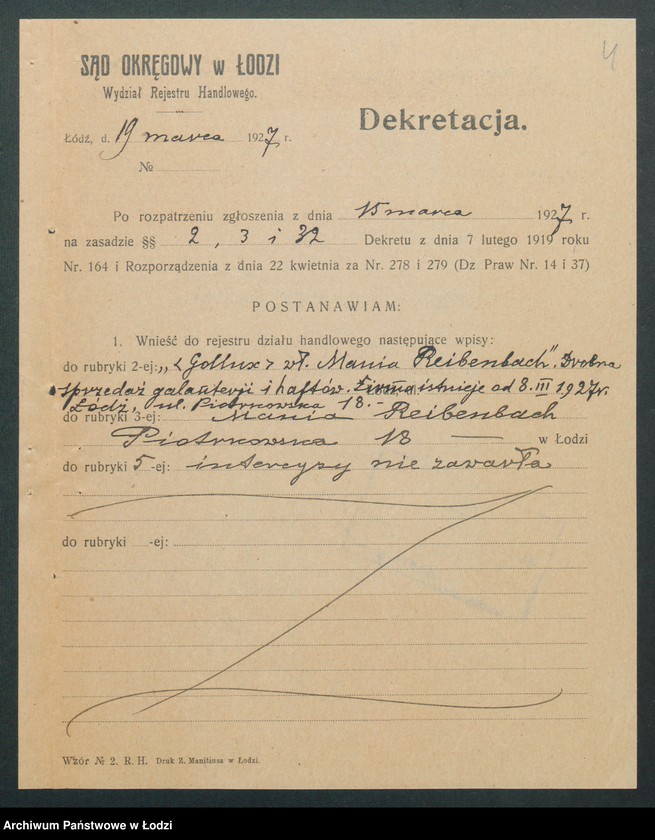 4
SĄD OKRĘGOWY w ŁODZI
Wydział Rejestru Handlowego.
Dekretacja.
Łódź, d. 19 marca 1927 r.
№
Po rozpatrzeniu zgłoszenia z dnia 15 marca 1927 r.
na zasadzie §§ 2, 3 i 32 Dekretu z dnia 7 lutego 1919 roku
Nr. 164 i Rozporządzenia z dnia 22 kwietnia za Nr. 278 i 279 (Dz Praw Nr. 14 i 37)
POSTANAWIAM:
1. Wnieść do rejestru działu handlowego następujące wpisy:
do rubryki 2-ej: „<Gollux> wł. Mania Reibenbach”. Drobna
sprzedaż galanterji i haftów. Firma istnieje od 8.III 1927r.
Łódź, ul. Piotrkowska 18.-
do rubryki 3-ej: Mania Reibenbach
Piotrkowska 18 — w Łodzi
do rubryki 5-ej: intercyzy nie zawarła
do rubryki -ej:
Wzór № 2. R. H. Druk Z. Manitiusa w Łodzi.
Archiwum Państwowe w Łodzi